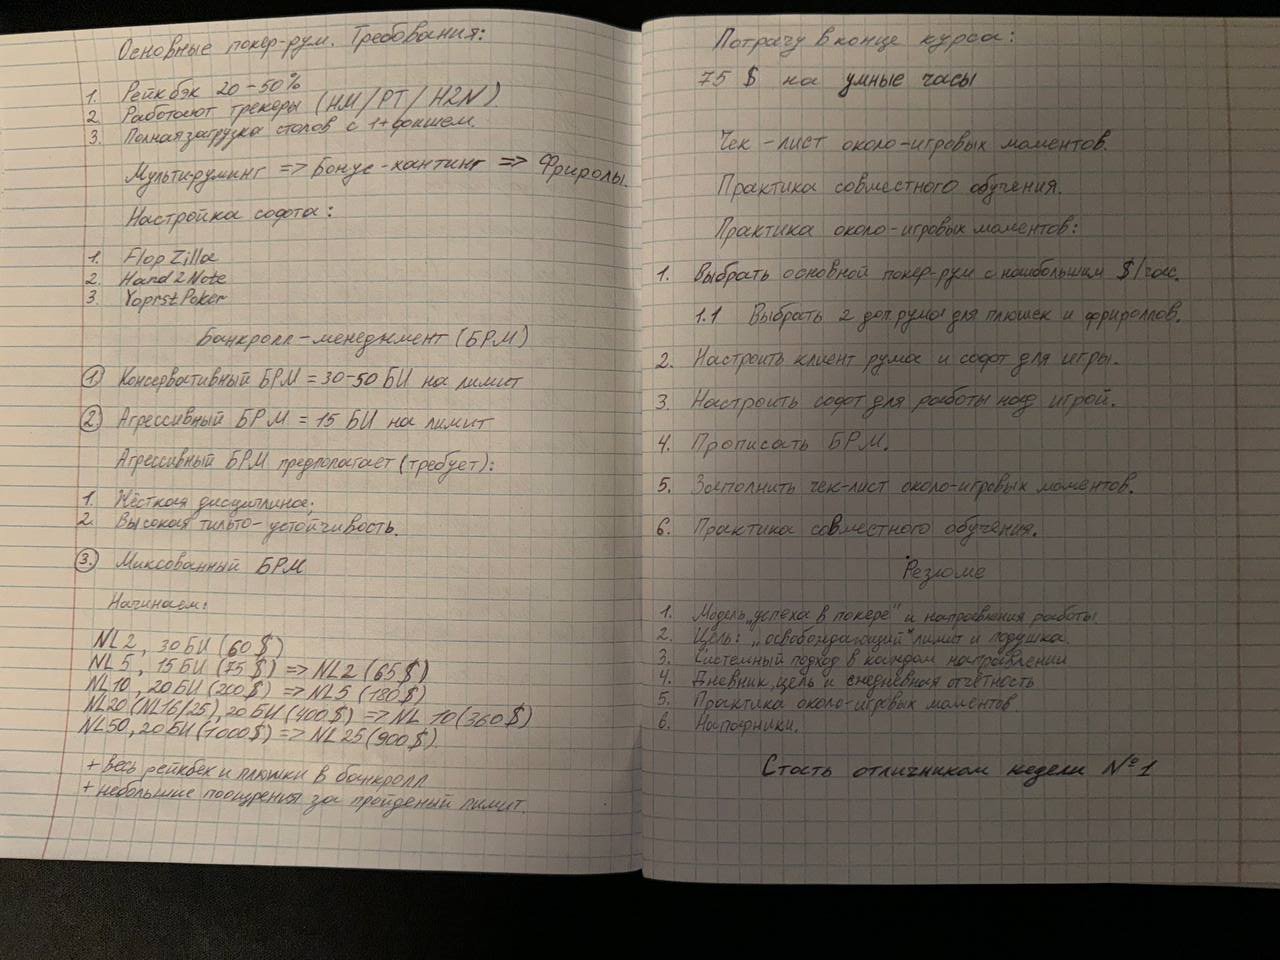 Основные покер-рум. Требования:
1. Рейкбэк 20-50%
2. Работают трекеры (HM/PT/H2N)
3. Полная загрузка столов с 1+ фишем.
Мультируминг => Бонус-хантинг => Фриролы.
Настройка софта:
1. FlopZilla
2. Hand2Note
3. YoprstPoker
Банкролл-менеджмент (БРМ)
1. Консервативный БРМ = 30-50 БИ на лимит
2. Агрессивный БРМ = 15 БИ на лимит
Агрессивный БРМ предполагает (требует):
1. Жёсткая дисциплина;
2. Высокая тильто-устойчивость.
3. Миксованный БРМ
Начинаем:
NL2, 30 БИ (60$)
NL5, 15 БИ (75$) => NL2 (65$)
NL10, 20 БИ (200$) => NL5 (180$)
NL20 (NL16/25), 20 БИ (400$) => NL 10 (360$)
NL50, 20 БИ (1000$) => NL25 (900$)
+ весь рейкбек и плюшки в банкролл
+ небольшие поощрения за пройденый лимит.
Потрачу в конце курса:
75 $ на умные часы
Чек-лист около-игровых моментов.
Практика совместного обучения.
Практика около-игровых моментов:
1. Выбрать основной покер-рум с наибольшим $/час.
1.1 Выбрать 2 доп.рума для плюшек и фрироллов.
2. Настроить клиент рума и софт для игры.
3. Настроить софт для работы над игрой.
4. Прописать БРМ.
5. Заполнить чек-лист около-игровых моментов.
6. Практика совместного обучения.
Резюме
1. Модель „успеха в покере" и направления работы
2. Цель: „освобождающий" лимит и подушка.
3. Системный подход в каждом направлении
4. Дневник, цель и ежедневная отчётность
5. Практика около-игровых моментов
6. Напарники.
Стать отличником недели №1